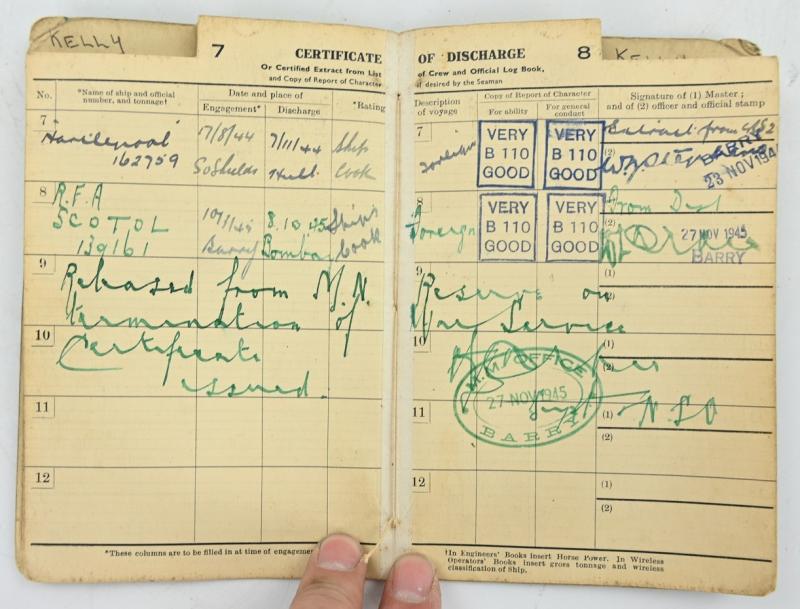 KELLY
KELLY
7 CERTIFICATE
Or Certified Extract from List
and Copy of Report of Character
No.
*Name of ship and official
number, and tonnage†
Date and place of
Engagement*
Discharge
*Rating
7
Hartlepool
162759
17/8/44
So Shields
7/11/44
Hull
Ships
Cook
8
R.F.A
SCOTOL
139161
Barry
8.10.45
Bombay
Ship's
Cook
9
Released from M.N.
termination of
10
Certificate
issued.
11
12
*These columns are to be filled in at time of engagement
OF DISCHARGE 8
of Crew and Official Log Book,
if desired by the Seaman
Description
of voyage
Copy of Report of Character
For ability
For general
conduct
Signature of (1) Master;
and of (2) officer and official stamp
7
Foreign
VERY
B 110
GOOD
VERY
B 110
GOOD
Extract from
(2)
BARRY
23 NOV 194
8
Foreign
VERY
B 110
GOOD
VERY
B 110
GOOD
From
(2)
27 NOV 1945
BARRY
Reserve on
War Service
(1)
(2)
10
(1)
(2)
M.M. OFFICE
27 NOV 1945
BARRY
11
(1)
(2)
12
(1)
(2)
†In Engineers' Books insert Horse Power. In Wireless
Operators' Books insert gross tonnage and wireless
classification of Ship.